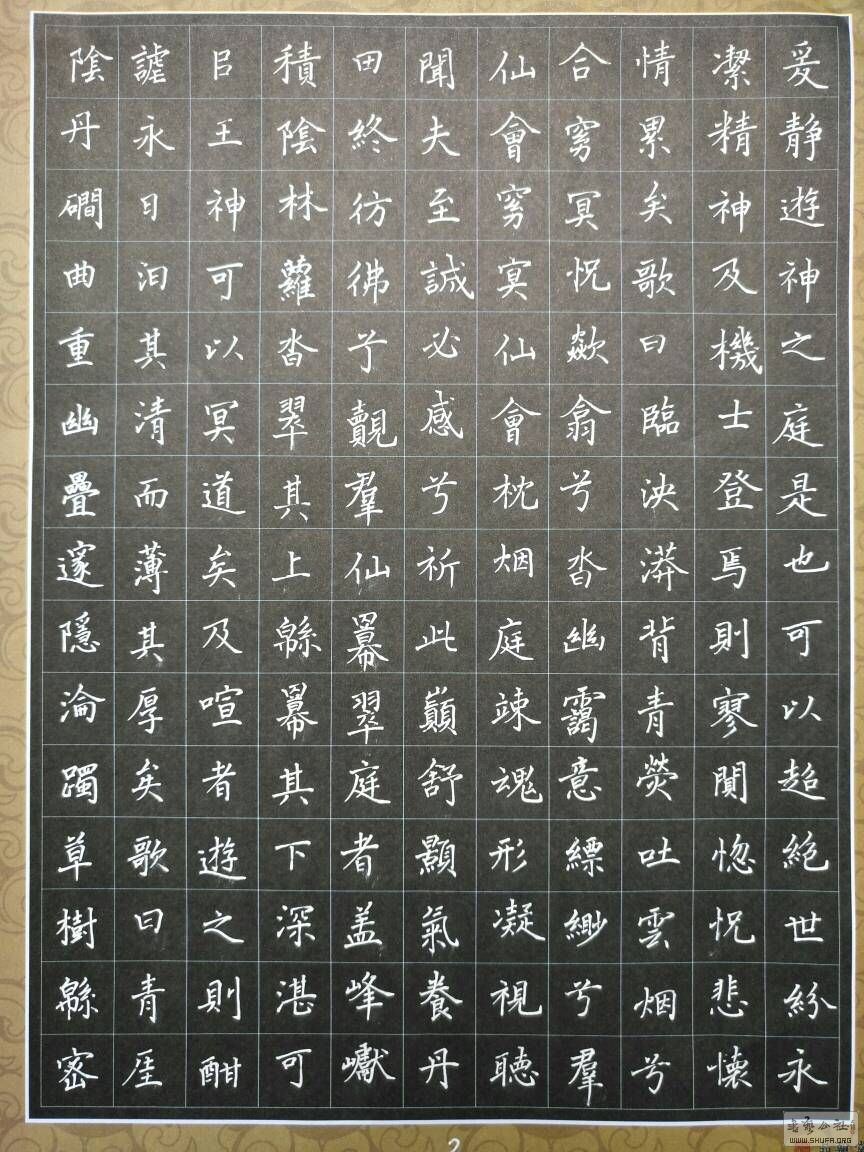 爰靜遊神之庭是也可以超絕世紛永
潔精神及機士登焉則寥闃惚怳悲懷
情累矣歌曰臨泱漭背青熒吐雲烟兮
合窮冥怳歘翕兮沓幽靄意縹緲兮羣
仙會窮冥仙會枕烟庭竦魂形凝視聽
聞夫至誠必感兮祈此巔舒顥氣養丹
田終彷彿兮覿羣仙羃翠庭者盖峰巘
積陰林蘿沓翠其上緜羃其下深湛可
㠯王神可以冥道矣及喧者遊之則酣
謔永日汩其清而薄其厚矣歌曰青厓
陰丹磵曲重幽疊邃隱淪躅草樹緜宻
2
書法公社
WWW.SHUFA.ORG